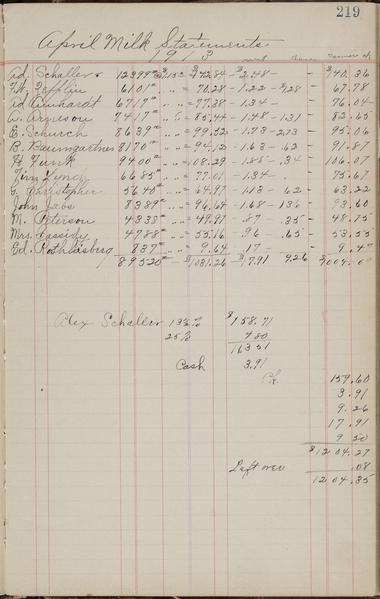 219
April Milk Statements
1913
Ad. Schaller 12399# 142.84 - 2.48 - 140.36
6101# " " 70.28 - 1.22 - 1.28 - 67.78
Ad 6717# " " 77.38 - 1.34 - 76.04
W. Arneson 7417# " " 85.44 - 1.48 - 1.31 82.65
E. Schurch 8639# " " 99.52 - 1.73 - 2.73 - 95.06
B. Baumgartner 8170# " " 94.12 - 1.63 - .62 91.87
H Funk 9400# " " 108.29 - 1.88 - .34 - 106.07
Tim Lynch 6685# " " 77.01 - 1.34 - 75.67
G. Christopher 5640# " " 64.97 - 1.13 - .62 - 63.22
John 8389# " " 96.64 - 1.68 - 1.36 - 93.60
M. Peterson 4338# " " 49.97 - .87 - .35 - 48.75
Mrs. Cassidy 4788# " " 55.16 - .96 - .65 - 53.55
Ed. Rothlisberg 837# " " 9.64 - .17 - - 9.47
89520# - $1031.26 - $17.91 9.26
Alex Schaller 13 % $158.71
25 % 4 80
163 51
Cash 3.91
Ck. 159.60
3.91
9.26
17.91
9 50
$1204.27
Left over .08
1204.35